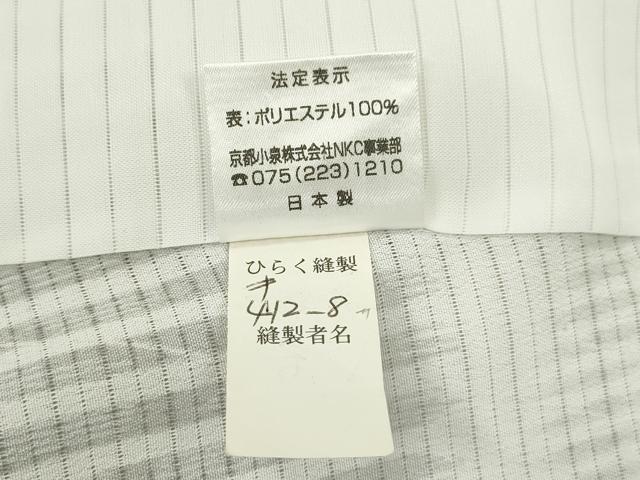 法定表示
表:ポリエステル100%
京都小泉株式会社NKC事業部
☎075(223)1210
日本製
ひらく縫製
412-8
縫製者名